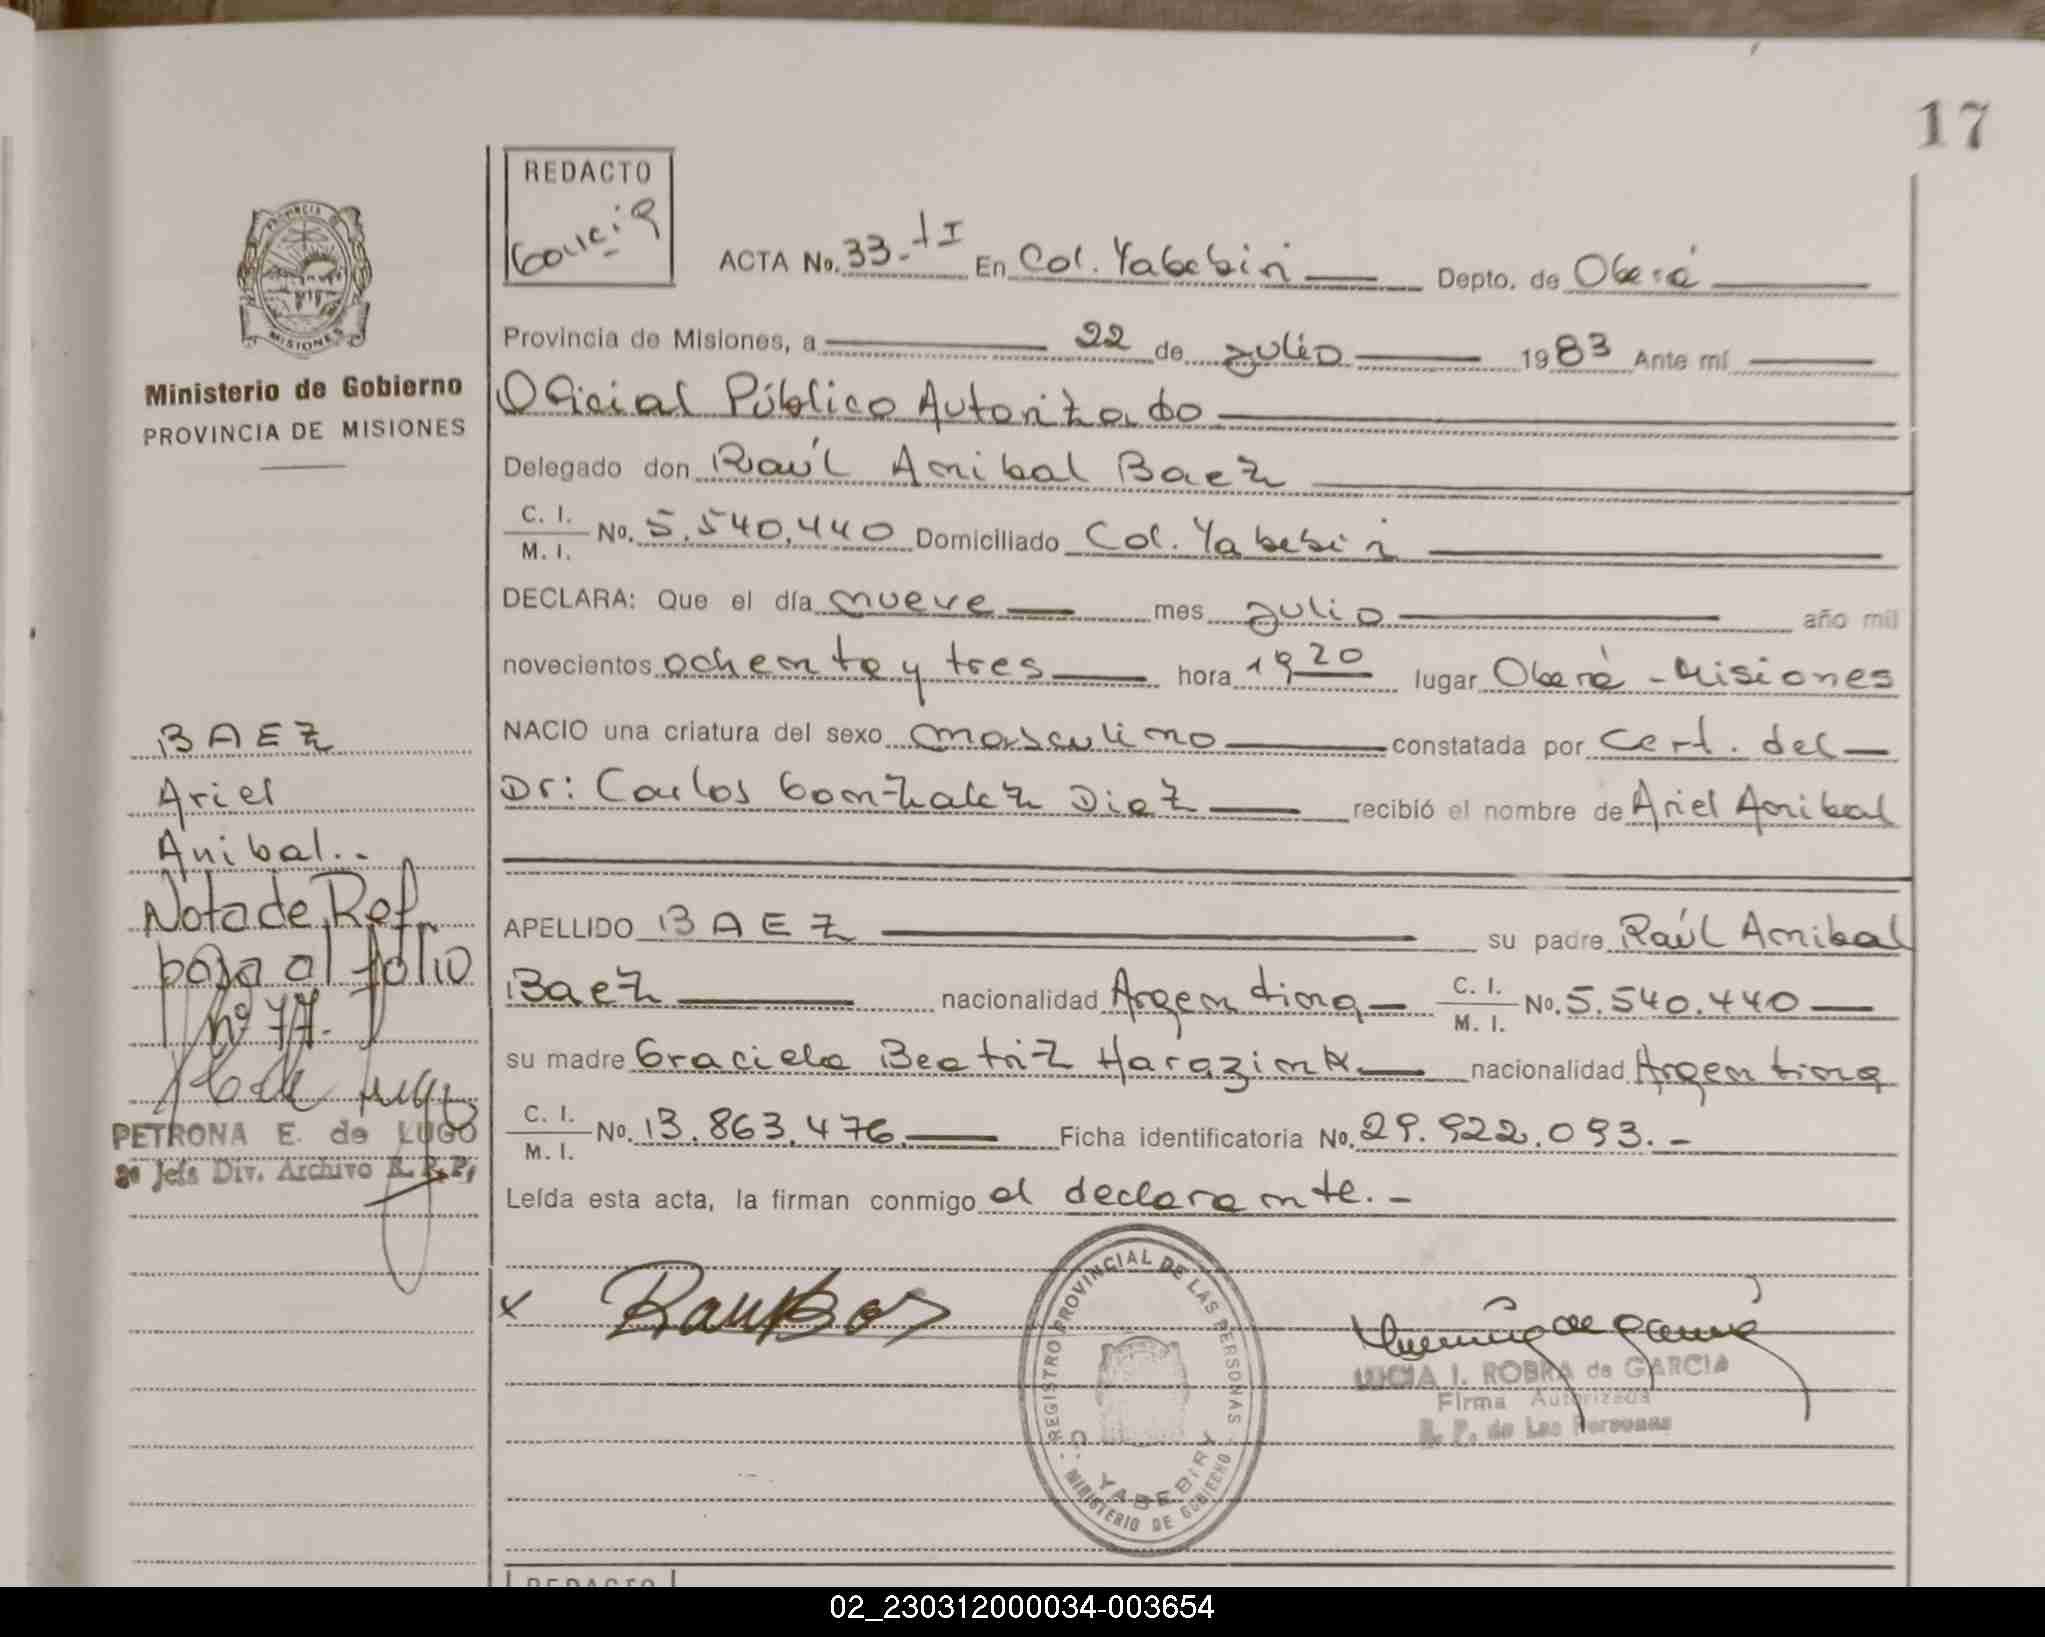 17
REDACTO
Garcia
ACTA No. 33-tI En Col. Yabebiri Depto. de Oberá
PROVINCIA DE
MISIONES
Provincia de Misiones, a 22 de Julio 1983 Ante mí
Ministerio de Gobierno
PROVINCIA DE MISIONES
Oficial Público Autorizado
Delegado don Raúl Anibal Baez
C. I.
M. I. No. 5.540.440 Domiciliado Col. Yabebiri
DECLARA: Que el día nueve mes Julio año mil
novecientos ochenta y tres hora 19 20 lugar Oberá - Misiones
NACIO una criatura del sexo masculino constatada por Cert. del
Dr: Carlos Gonzalez Diaz recibió el nombre de Ariel Anibal
APELLIDO BAEZ su padre Raúl Anibal
Baez nacionalidad Argentina C. I.
M. I. No. 5.540.440
su madre Graciela Beatriz Harazink nacionalidad Argentina
C. I.
M. I. No. 13.863.476 Ficha identificatoria No. 29.922.093.-
Leída esta acta, la firman conmigo el declarante.-
BAEZ
Ariel
Anibal..
Nota de Ref.
pasa al folio
nº 77.
PETRONA E. de LUGO
2º Jefe Div. Archivo R. P. P.
x Raul Baez
REGISTRO PROVINCIAL DE LAS PERSONAS
C. YABEBIRY
MINISTERIO DE GOBIERNO
LUCIA I. ROBRA de GARCIA
Firma Autorizada
R. P. de Las Personas
REDACTO
02_230312000034-003654